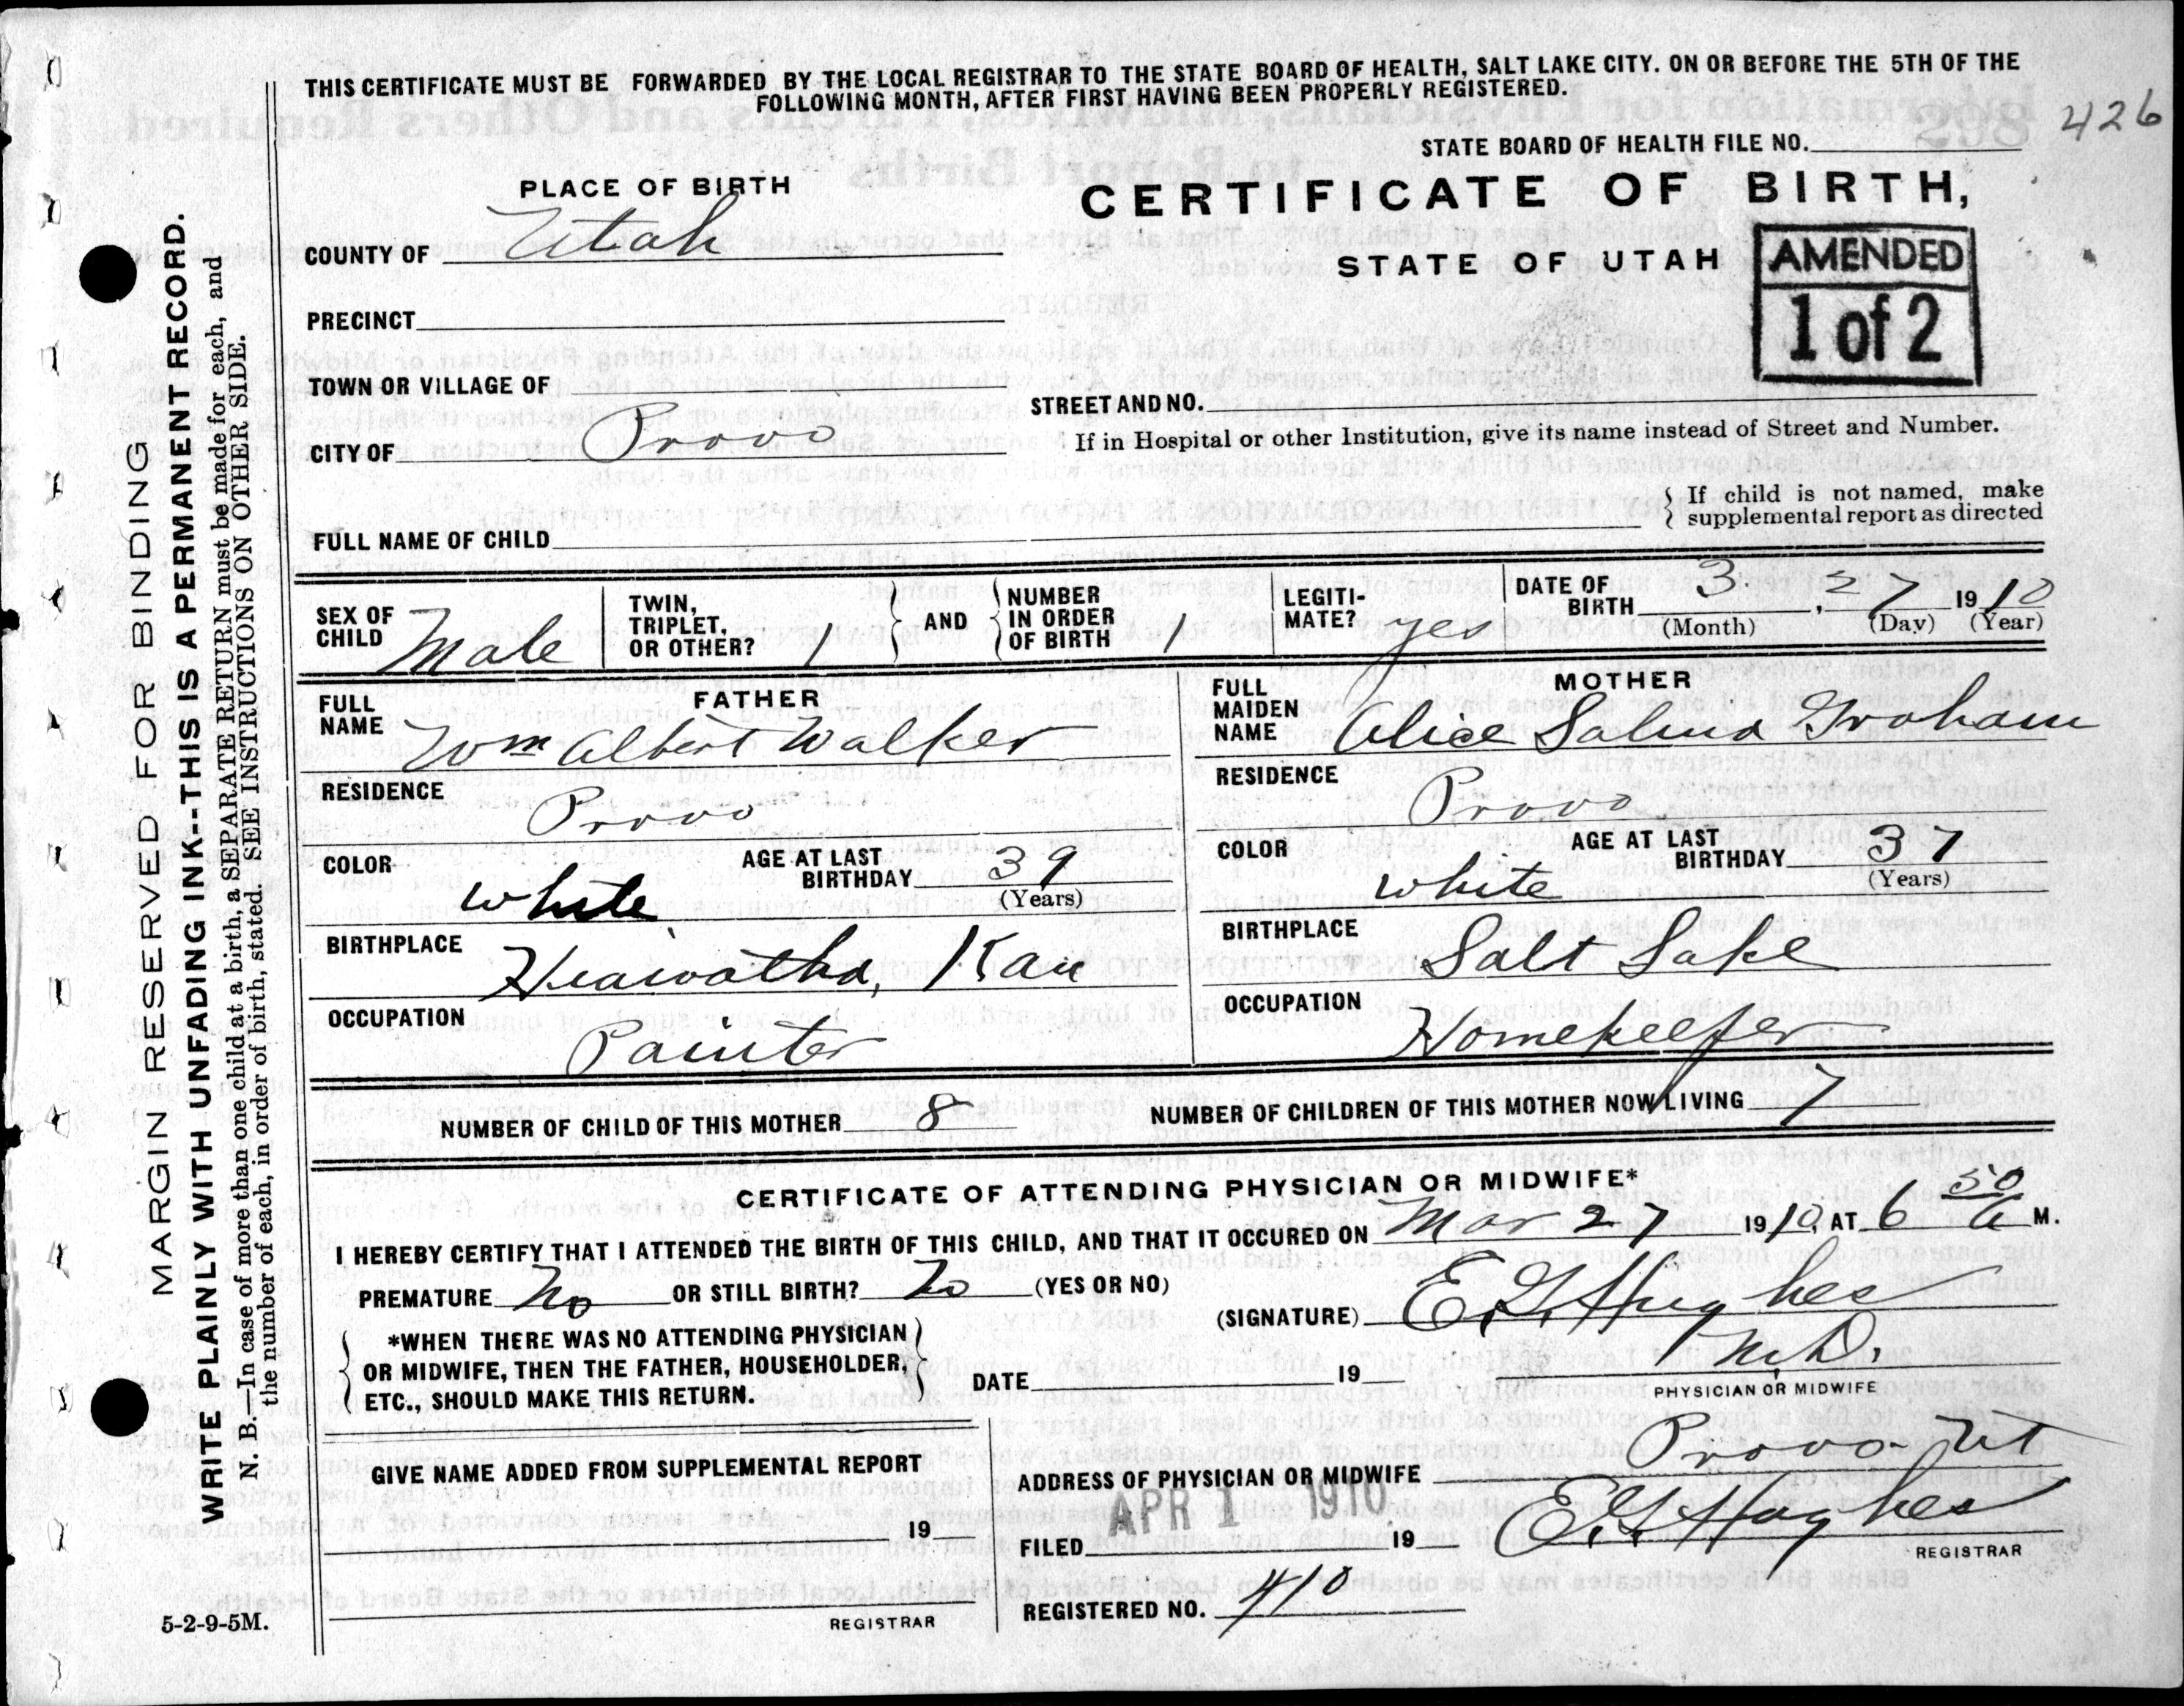 THIS CERTIFICATE MUST BE FORWARDED BY THE LOCAL REGISTRAR TO THE STATE BOARD OF HEALTH, SALT LAKE CITY. ON OR BEFORE THE 5TH OF THE
FOLLOWING MONTH, AFTER FIRST HAVING BEEN PROPERLY REGISTERED.
426
STATE BOARD OF HEALTH FILE NO.
PLACE OF BIRTH
CERTIFICATE OF BIRTH,
COUNTY OF Utah
STATE OF UTAH
AMENDED
1 of 2
PRECINCT
TOWN OR VILLAGE OF
STREET AND NO.
CITY OF Provo
If in Hospital or other Institution, give its name instead of Street and Number.
FULL NAME OF CHILD
If child is not named, make
supplemental report as directed
SEX OF CHILD Male
TWIN, TRIPLET, OR OTHER? 1
AND
NUMBER IN ORDER OF BIRTH 1
LEGITI-MATE? yes
DATE OF BIRTH 3, 27 1910
(Month) (Day) (Year)
FATHER
FULL NAME Wm Albert Walker
RESIDENCE Provo
COLOR white
AGE AT LAST BIRTHDAY 39
(Years)
BIRTHPLACE Hiawatha, Kan
OCCUPATION Painter
MOTHER
FULL MAIDEN NAME Alice Salina Graham
RESIDENCE Provo
COLOR white
AGE AT LAST BIRTHDAY 37
(Years)
BIRTHPLACE Salt Lake
OCCUPATION Homekeeper
NUMBER OF CHILD OF THIS MOTHER 8
NUMBER OF CHILDREN OF THIS MOTHER NOW LIVING 7
CERTIFICATE OF ATTENDING PHYSICIAN OR MIDWIFE*
I HEREBY CERTIFY THAT I ATTENDED THE BIRTH OF THIS CHILD, AND THAT IT OCCURED ON Mar 27 1910, AT 6 50 A M.
PREMATURE No OR STILL BIRTH? No (YES OR NO)
(SIGNATURE) E. G. Hughes
M.D.
PHYSICIAN OR MIDWIFE
*WHEN THERE WAS NO ATTENDING PHYSICIAN
OR MIDWIFE, THEN THE FATHER, HOUSEHOLDER,
ETC., SHOULD MAKE THIS RETURN.
DATE 19
GIVE NAME ADDED FROM SUPPLEMENTAL REPORT
19
REGISTRAR
ADDRESS OF PHYSICIAN OR MIDWIFE Provo Ut
APR 1 1910
FILED 19
E. G. Hughes
REGISTRAR
REGISTERED NO. 410
5-2-9-5M.
MARGIN RESERVED FOR BINDING
WRITE PLAINLY WITH UNFADING INK--THIS IS A PERMANENT RECORD.
N. B.—In case of more than one child at a birth, a SEPARATE RETURN must be made for each, and
the number of each, in order of birth, stated. SEE INSTRUCTIONS ON OTHER SIDE.